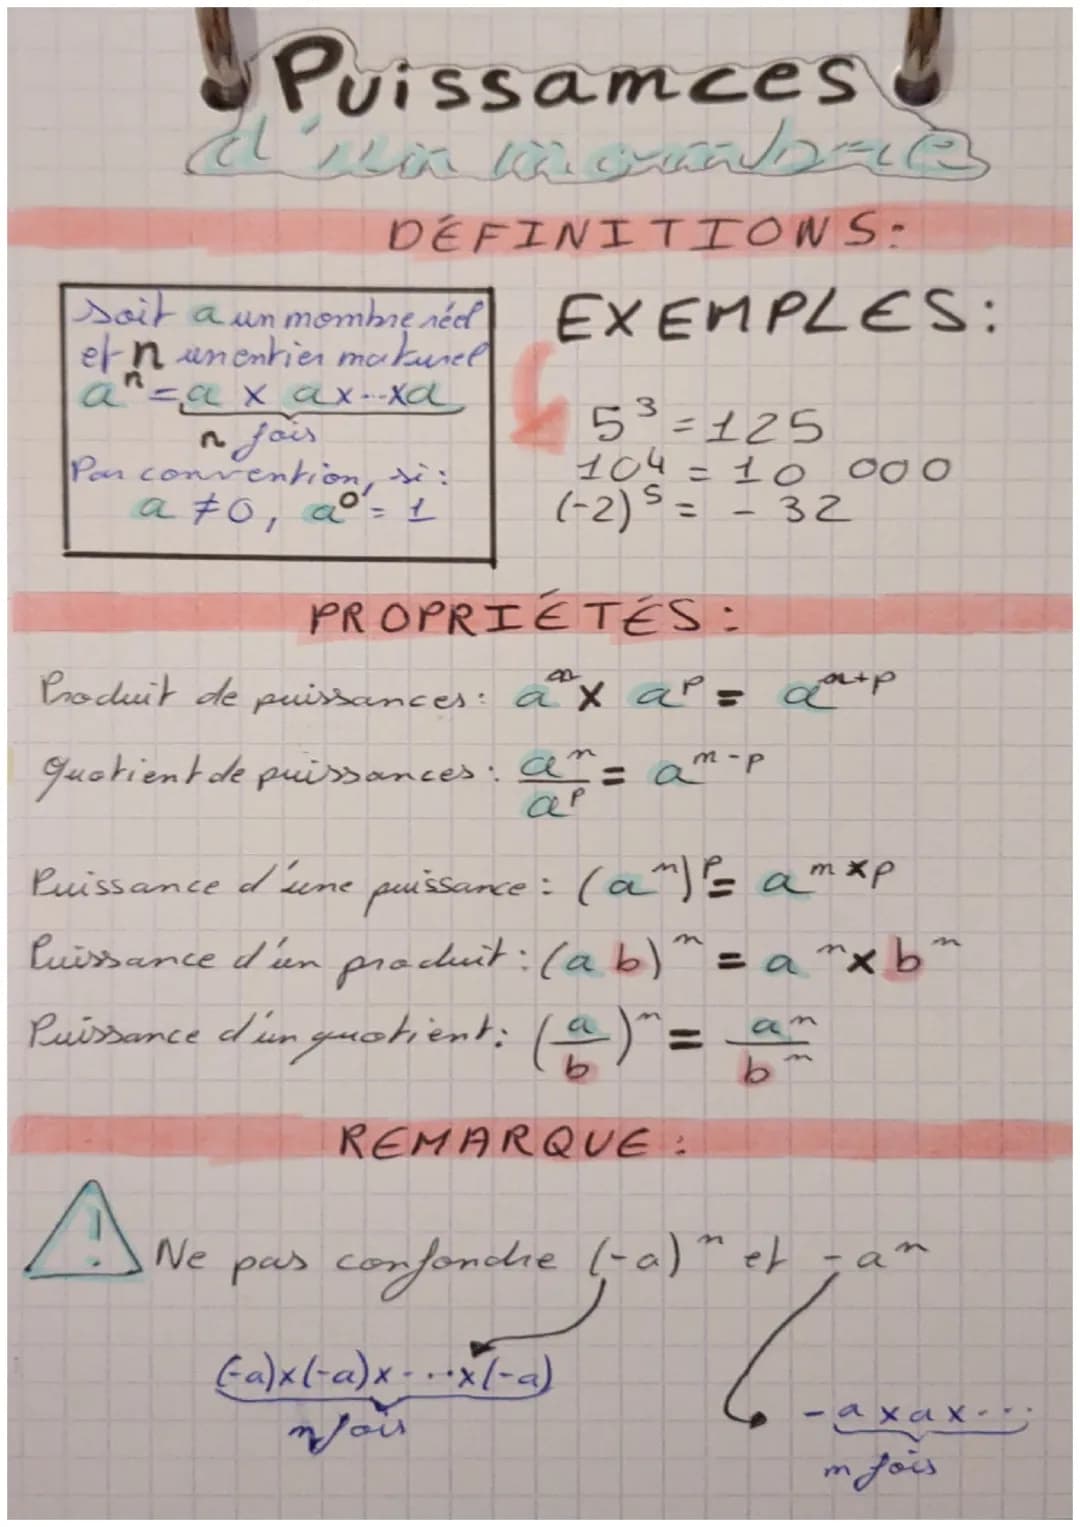 Puissances
d'un nombre
DÉFINITIONS:
Soit a un nombre réel
et n un entier naturel
aⁿ = a x a x...x a
n fois
Par convention, si :
a ≠ 0, a⁰ = 1
EXEMPLES:
5³ = 125
10⁴ = 10 000
(-2)⁵ = - 32
PROPRIÉTÉS:
Produit de puissances: aⁿ x aᵖ = aⁿ⁺ᵖ
Quotient de puissances: aⁿ/aᵖ = aⁿ⁻ᵖ
Puissance d'une puissance: (aⁿ)ᵖ = aⁿ ˣ ᵖ
Puissance d'un produit: (ab)ⁿ = aⁿ x bⁿ
Puissance d'un quotient: (a/b)ⁿ = aⁿ/bⁿ
REMARQUE:
! Ne pas confondre (-a)ⁿ et -aⁿ
(-a)x(-a)x...x(-a)
n fois
-a x a x...
n fois